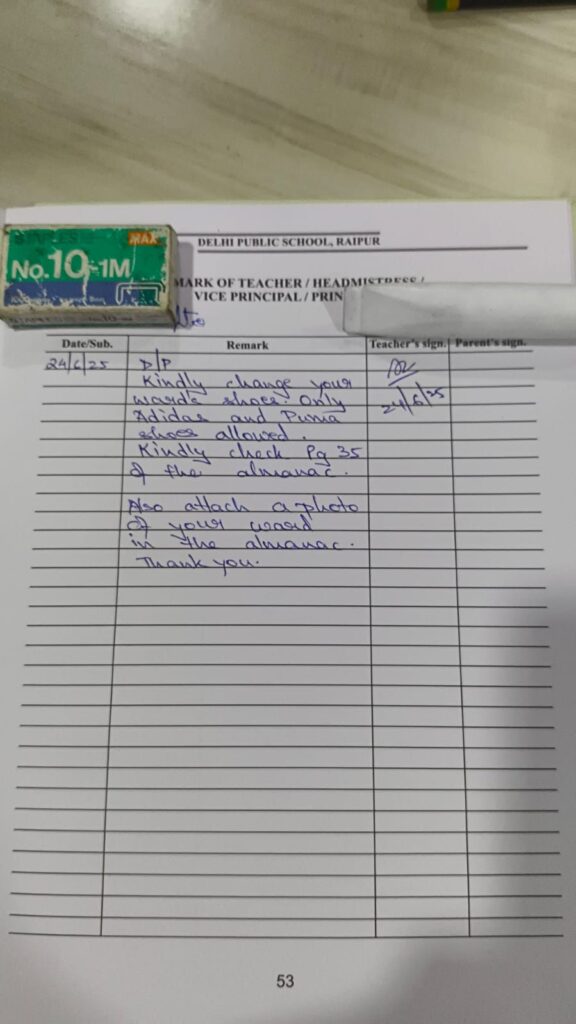 STAPLES MAX
No.10-1M
DELHI PUBLIC SCHOOL, RAIPUR
MARK OF TEACHER / HEADMISTRESS /
VICE PRINCIPAL / PRIN
Date/Sub. Remark Teacher's sign. Parent's sign.
24/6/25 D/P
Kindly change your
ward's shoes. Only 24/6/25
Adidas and Puma
shoes allowed.
Kindly check Pg 35
of the almanac.
Also attach a photo
of your ward
in the almanac.
Thank you.
53